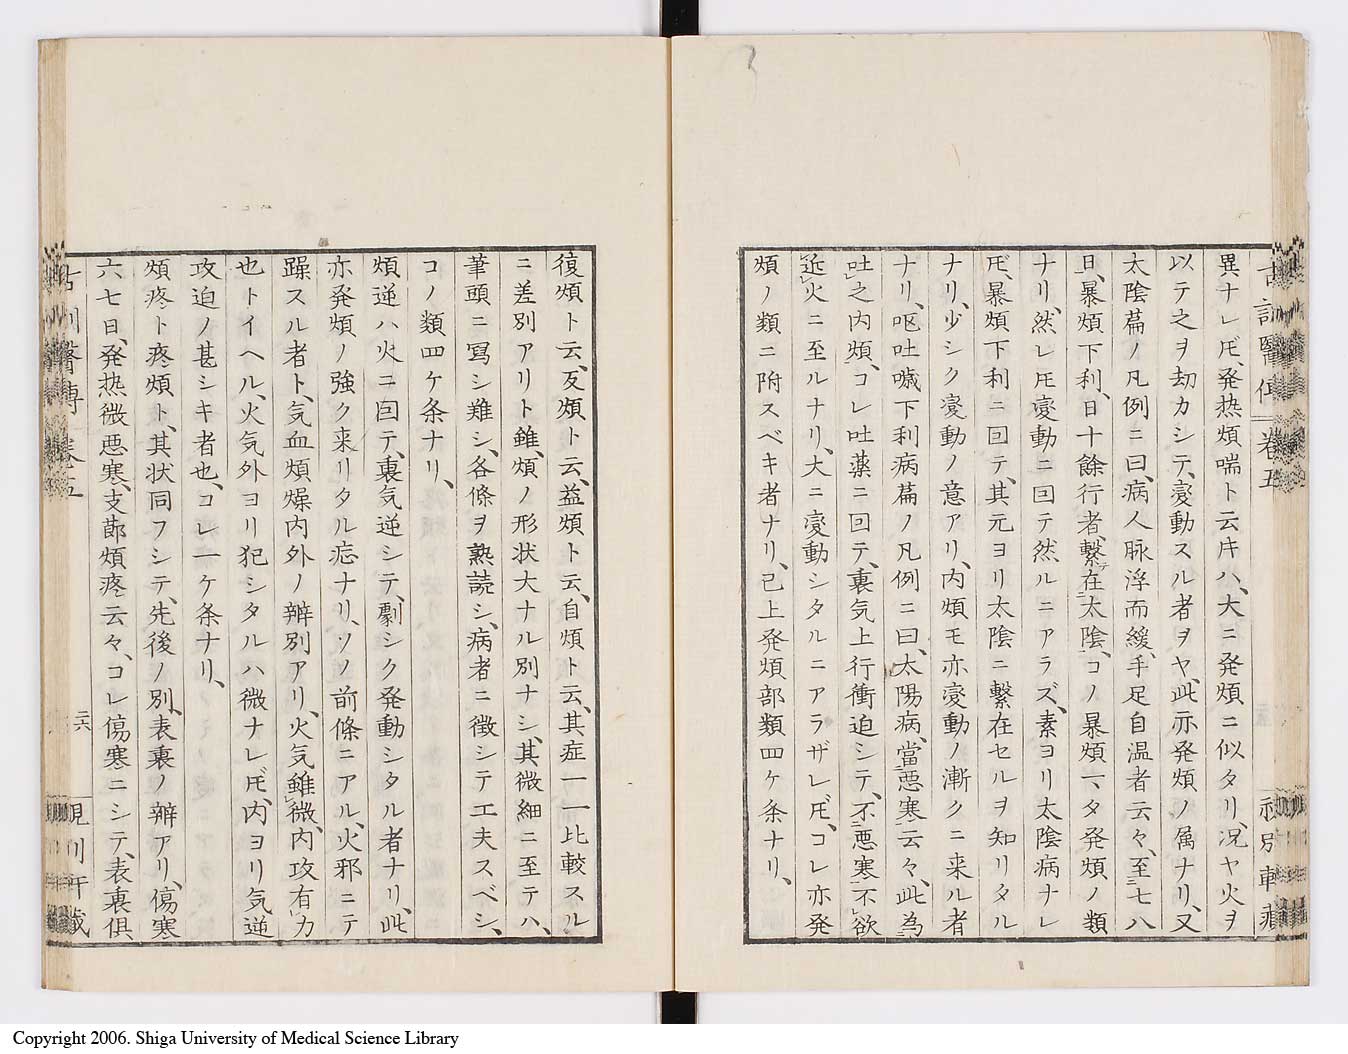 異ナレ𪜈、発热煩喘ト云𪜈ハ、大ニ発煩ニ似タリ、况ヤ火ヲ
以テ之ヲ劫カシテ、変動スル者ヲヤ、此亦発煩ノ属ナリ、又
太陰萹ノ凡例ニ曰、病人脉浮而緩、手足自温者云々、至七八
日、暴煩下利、日十餘行者、繋在太陰、コノ暴煩一、タ発煩ノ類
ナリ、然レ𪜈変動ニ回テ然ルニアラズ、素ヨリ太陰病ナレ
𪜈、暴煩下利ニ回テ、其元ヨリ太陰ニ繋在セルヲ知リタル
ナリ、少シク変動ノ意アリ、内煩モ亦変動ノ漸クニ来ル者
ナリ、呕吐噦下利病萹ノ凡例ニ曰、太陽病、當悪寒云々、此為
吐之内煩、コレ吐薬ニ回テ、裏気上行衝迫シテ、不悪寒不欲
近火ニ至ルナリ、大ニ変動シタルニアラザレ𪜈、コレ亦発
煩ノ類ニ附スベキ者ナリ、已上発煩部類四ケ条ナリ、
古訓醫傳 卷五
復煩ト云、反煩ト云、益煩ト云、自煩ト云、其症一一比較スル
ニ差別アリト雖、煩ノ形状大ナル別ナシ、其微細ニ至テハ、
筆頭ニ寫シ難シ、各條ヲ熟読シ、病者ニ徴シテ工夫スベシ、
コノ類四ケ条ナリ、
煩逆ハ火ニ回テ、裏気逆シテ、劇シク発動シタル者ナリ、此
亦発煩ノ強ク来リタル㤙ナリ、ソノ前條ニアル、火邪ニテ
躁スル者ト、気血煩燥内外ノ辨別アリ、火気雖微、内攻有力
也トイヘル、火気外ヨリ犯シタルハ微ナレ𪜈、内ヨリ気逆
攻迫ノ甚シキ者也、コレ一ケ条ナリ、
煩疼ト疼煩ト、其状同フシテ、先後ノ別、表裏ノ辨アリ、傷寒
六七日、発热微悪寒、支莭煩疼云々、コレ傷寒ニシテ、表裏俱
古訓醫傳 卷五 二六
Copyright 2006. Shiga University of Medical Science Library